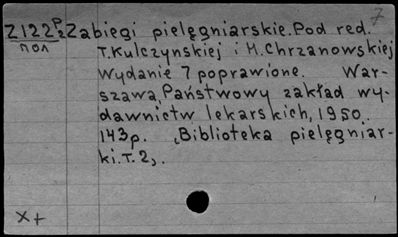 7
Z122 P/2 Zabiegi pielęgniarskie. Pod red.
пол T. Kulczynskiej i M. Chrzanowskiej
Wydanie 7 poprawione. War-
szawa, Państwowy zakład wy-
dawnictw lekarskich, 1950.
143p. „Biblioteka pielęgniar-
ki. T. 2„.
X+